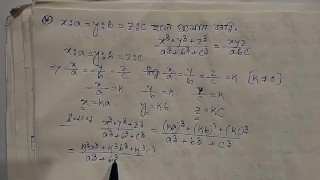 x:a = y:b = z:c হলে প্রমাণ করি,
x³+y³+z³ / a³+b³+c³ = xyz / abc
x:a = y:b = z:c
⇒ x/a = y/b = z/c  x/a = y/b = z/c = k [k≠0]
x/a = k  y/b = k  z/c = k
x = ka  y = kb  z = kc
L.H.S x³+y³+z³ / a³+b³+c³ = (ka)³+(kb)³+(kc)³ / a³+b³+c³
= k³a³+k³b³+k³c³ / a³+b³